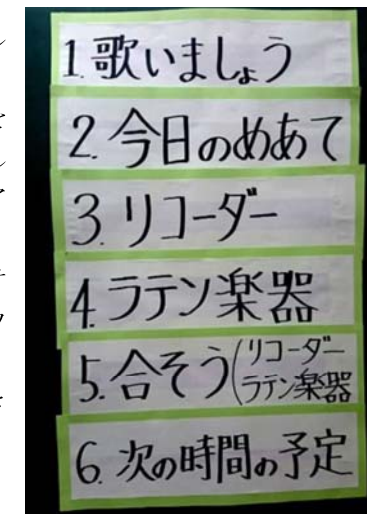 1.歌いましょう
2.今日のめあて
3.リコーダー
4.ラテン楽器
5.合そう(リコーダー
ラテン楽器
6.次の時間の予定